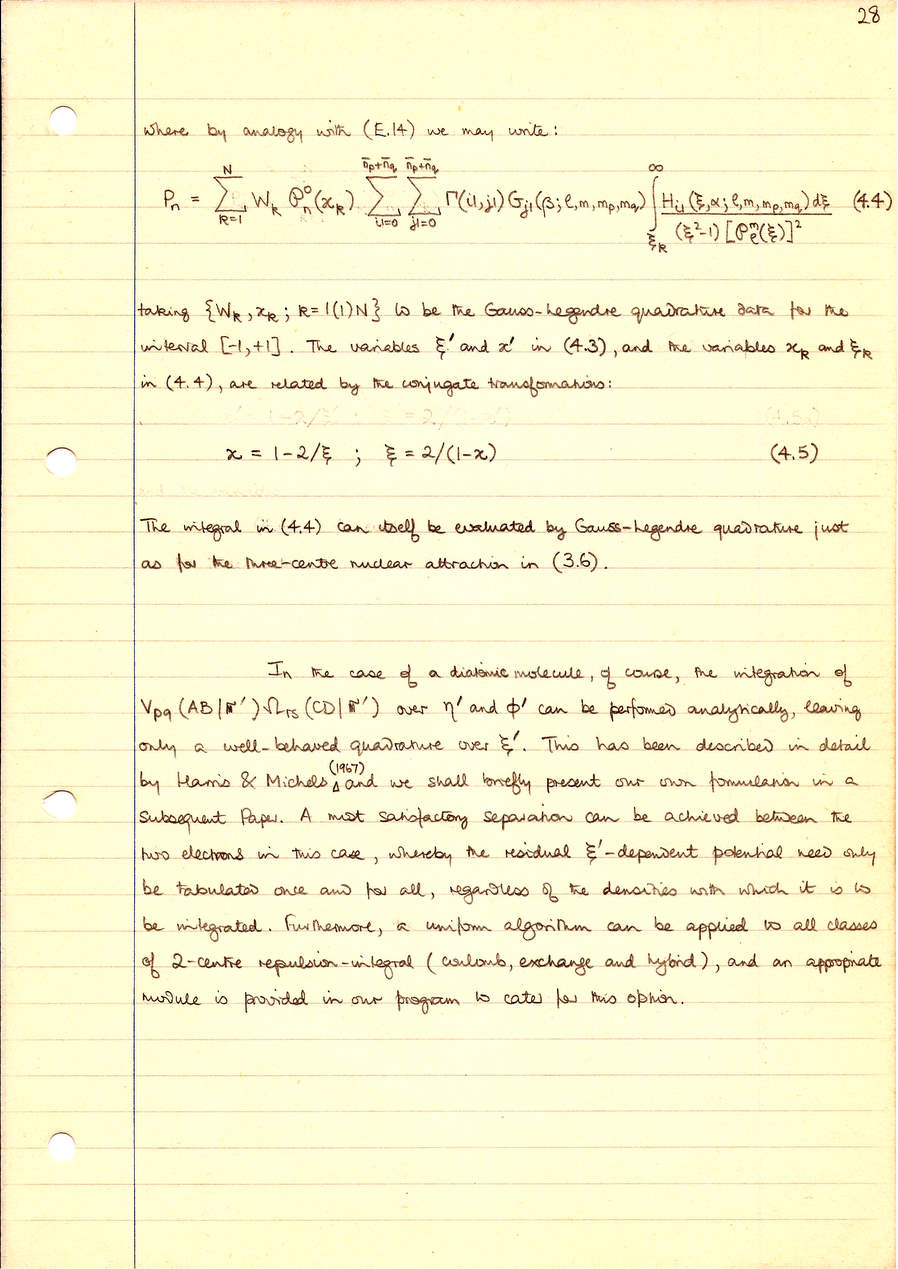 28
where by analogy with (E.14) we may write:
Pₙ = Σ_{k=1}^{N} W_k 𝒫ₙ⁰(x_k) Σ_{i1=0}^{n̄p+n̄q} Σ_{j1=0}^{n̄p+n̄q} Γ(i1,j1) G_{j1}(β; ℓ,m,mp,mq) ∫_{ξ_k}^{∞} H_{i1}(ξ,α; ℓ,m,mp,mq) dξ / (ξ²-1) [𝒫_ℓ^m(ξ)]² (4.4)
taking {W_k, x_k; k=1(1)N} to be the Gauss-Legendre quadrature data for the
interval [-1,+1]. The variables ξ′ and x′ in (4.3), and the variables x_k and ξ_k
in (4.4), are related by the conjugate transformations:
x = 1-2/ξ ; ξ = 2/(1-x) (4.5)
The integral in (4.4) can itself be evaluated by Gauss-Legendre quadrature just
as for the three-centre nuclear attraction in (3.6).
In the case of a diatomic molecule, of course, the integration of
V_pq (AB|𝐫′) Ω_rs (CD|𝐫′) over η′ and φ′ can be performed analytically, leaving
only a well-behaved quadrature over ξ′. This has been described in detail
by Harris & Michels (1967) and we shall briefly present our own formulation in a
subsequent Paper. A most satisfactory separation can be achieved between the
two electrons in this case, whereby the residual ξ′-dependent potential need only
be tabulated once and for all, regardless of the densities with which it is to
be integrated. Furthermore, a uniform algorithm can be applied to all classes
of 2-centre repulsion-integral (coulomb, exchange and hybrid), and an appropriate
module is provided in our program to cater for this option.